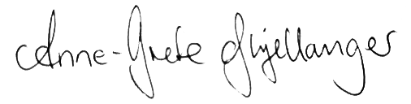 Anne-Grete Skjellanger